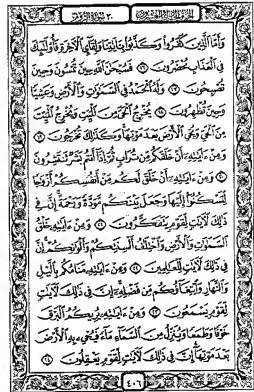 الجزء الحادي والعشرون ٣٠ سورة الروم
وَأَمَّا ٱلَّذِينَ كَفَرُوا۟ وَكَذَّبُوا۟ بِـَٔايَـٰتِنَا وَلِقَآئِ ٱلْـَٔاخِرَةِ فَأُو۟لَـٰٓئِكَ
فِى ٱلْعَذَابِ مُحْضَرُونَ ١٦ فَسُبْحَـٰنَ ٱللَّهِ حِينَ تُمْسُونَ وَحِينَ
تُصْبِحُونَ ١٧ وَلَهُ ٱلْحَمْدُ فِى ٱلسَّمَـٰوَٰتِ وَٱلْأَرْضِ وَعَشِيًّا
وَحِينَ تُظْهِرُونَ ١٨ يُخْرِجُ ٱلْحَىَّ مِنَ ٱلْمَيِّتِ وَيُخْرِجُ ٱلْمَيِّتَ
مِنَ ٱلْحَىِّ وَيُحْىِ ٱلْأَرْضَ بَعْدَ مَوْتِهَا وَكَذَٰلِكَ تُخْرَجُونَ ١٩
وَمِنْ ءَايَـٰتِهِۦٓ أَنْ خَلَقَكُم مِّن تُرَابٍ ثُمَّ إِذَآ أَنتُم بَشَرٌ تَنتَشِرُونَ
٢٠ وَمِنْ ءَايَـٰتِهِۦٓ أَنْ خَلَقَ لَكُم مِّنْ أَنفُسِكُمْ أَزْوَٰجًا
لِّتَسْكُنُوٓا۟ إِلَيْهَا وَجَعَلَ بَيْنَكُم مَّوَدَّةً وَرَحْمَةً إِنَّ فِى
ذَٰلِكَ لَـَٔايَـٰتٍ لِّقَوْمٍ يَتَفَكَّرُونَ ٢١ وَمِنْ ءَايَـٰتِهِۦ خَلْقُ
ٱلسَّمَـٰوَٰتِ وَٱلْأَرْضِ وَٱخْتِلَـٰفُ أَلْسِنَتِكُمْ وَأَلْوَٰنِكُمْ إِنَّ
فِى ذَٰلِكَ لَـَٔايَـٰتٍ لِّلْعَـٰلِمِينَ ٢٢ وَمِنْ ءَايَـٰتِهِۦ مَنَامُكُم بِٱلَّيْلِ
وَٱلنَّهَارِ وَٱبْتِغَآؤُكُم مِّن فَضْلِهِۦٓ إِنَّ فِى ذَٰلِكَ لَـَٔايَـٰتٍ
لِّقَوْمٍ يَسْمَعُونَ ٢٣ وَمِنْ ءَايَـٰتِهِۦ يُرِيكُمُ ٱلْبَرْقَ
خَوْفًا وَطَمَعًا وَيُنَزِّلُ مِنَ ٱلسَّمَآءِ مَآءً فَيُحْىِۦ بِهِ ٱلْأَرْضَ
بَعْدَ مَوْتِهَآ إِنَّ فِى ذَٰلِكَ لَـَٔايَـٰتٍ لِّقَوْمٍ يَعْقِلُونَ ٢٤
٤٠٦